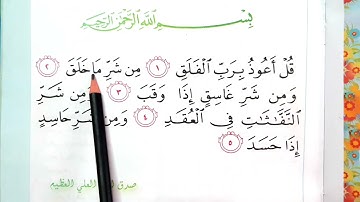 بِسْمِ اللَّهِ الرَّحْمَٰنِ الرَّحِيمِ
قُلْ أَعُوذُ بِرَبِّ الْفَلَقِ ١ مِن شَرِّ مَا خَلَقَ ٢
وَمِن شَرِّ غَاسِقٍ إِذَا وَقَبَ ٣ وَمِن شَرِّ
النَّفَّاثَاتِ فِي الْعُقَدِ ٤ وَمِن شَرِّ حَاسِدٍ
إِذَا حَسَدَ ٥
صدق العلي العظيم